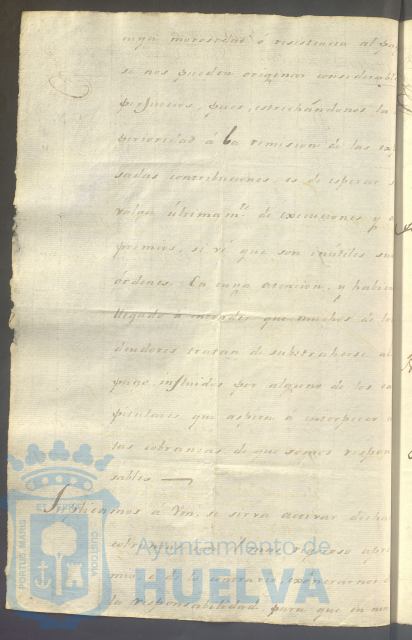 cuya morosidad ó resistencia al pa
se nos pueden originar considerabl
perjuicios, pues, estrechándonos la
perioridad á la remision de las ex
sadas contribuciones, es de esperar s
valga últimamte. de execuciones y a
premios, si vé que son inútiles sus
órdenes. En cuya atencion, y habien
llegado á entender que muchos de los
deudores tratan de substraherse al
pago influidos por alguno de los ca
pitulares que aspira á entorpecer
las cobranzas de que somos respon
sables
Suplicamos a Vm. se sirva acordar dicha
cobranza
mio, ó de lo contrario, exonerarnos d
la responsabilidad, para que en nin
PORTUS MARIS
ET TERRÆ
CUSTODIA
Ayuntamiento de
HUELVA